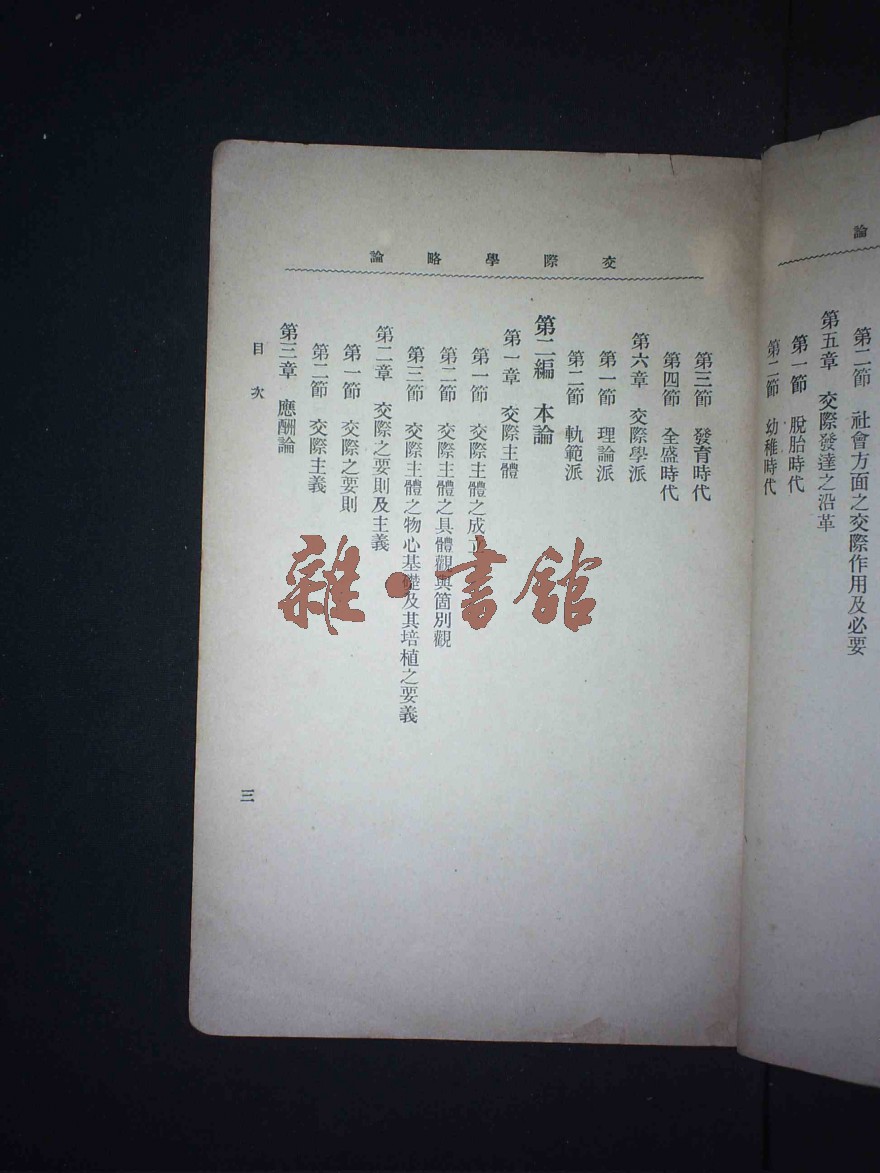 論
第二節　社會方面之交際作用及必要
第五章　交際發達之沿革
第一節　脫胎時代
第二節　幼稚時代
交際學略論
第三節　發育時代
第四節　全盛時代
第六章　交際學派
第一節　理論派
第二節　軌範派
第二編　本論
第一章　交際主體
第一節　交際主體之成立
第二節　交際主體之具體觀與箇別觀
第三節　交際主體之物心基礎及其培植之要義
第二章　交際之要則及主義
第一節　交際之要則
第二節　交際主義
第三章　應酬論
目次
三
雜·書館